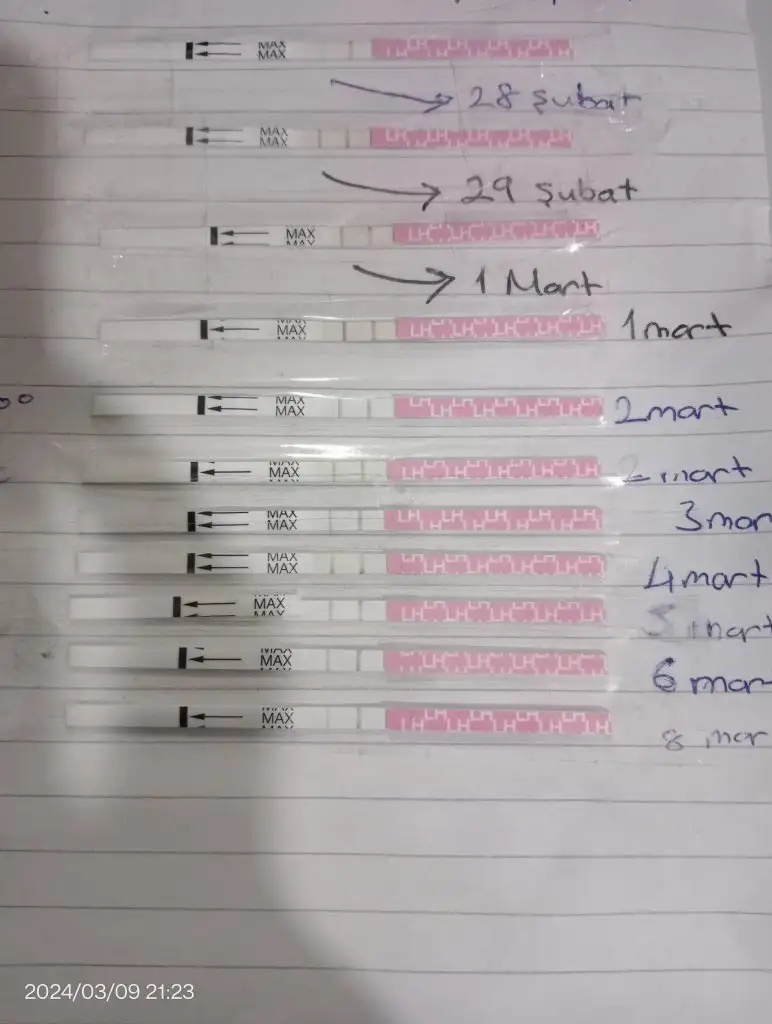 MAX
MAX
28 Şubat
MAX
MAX
29 Şubat
MAX
1 Mart
MAX
1 mart
MAX
MAX
2 mart
MAX
2 mart
MAX
MAX
3 mar
MAX
MAX
4 mart
MAX
5 mart
MAX
6 mar
MAX
8 mar
2024/03/09 21:23